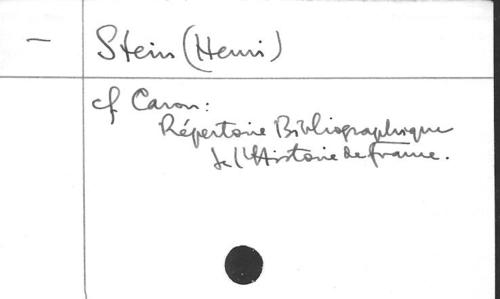 — Stein (Henri)
cf Caron:
Répertoire Bibliographique
de l'Histoire de France.